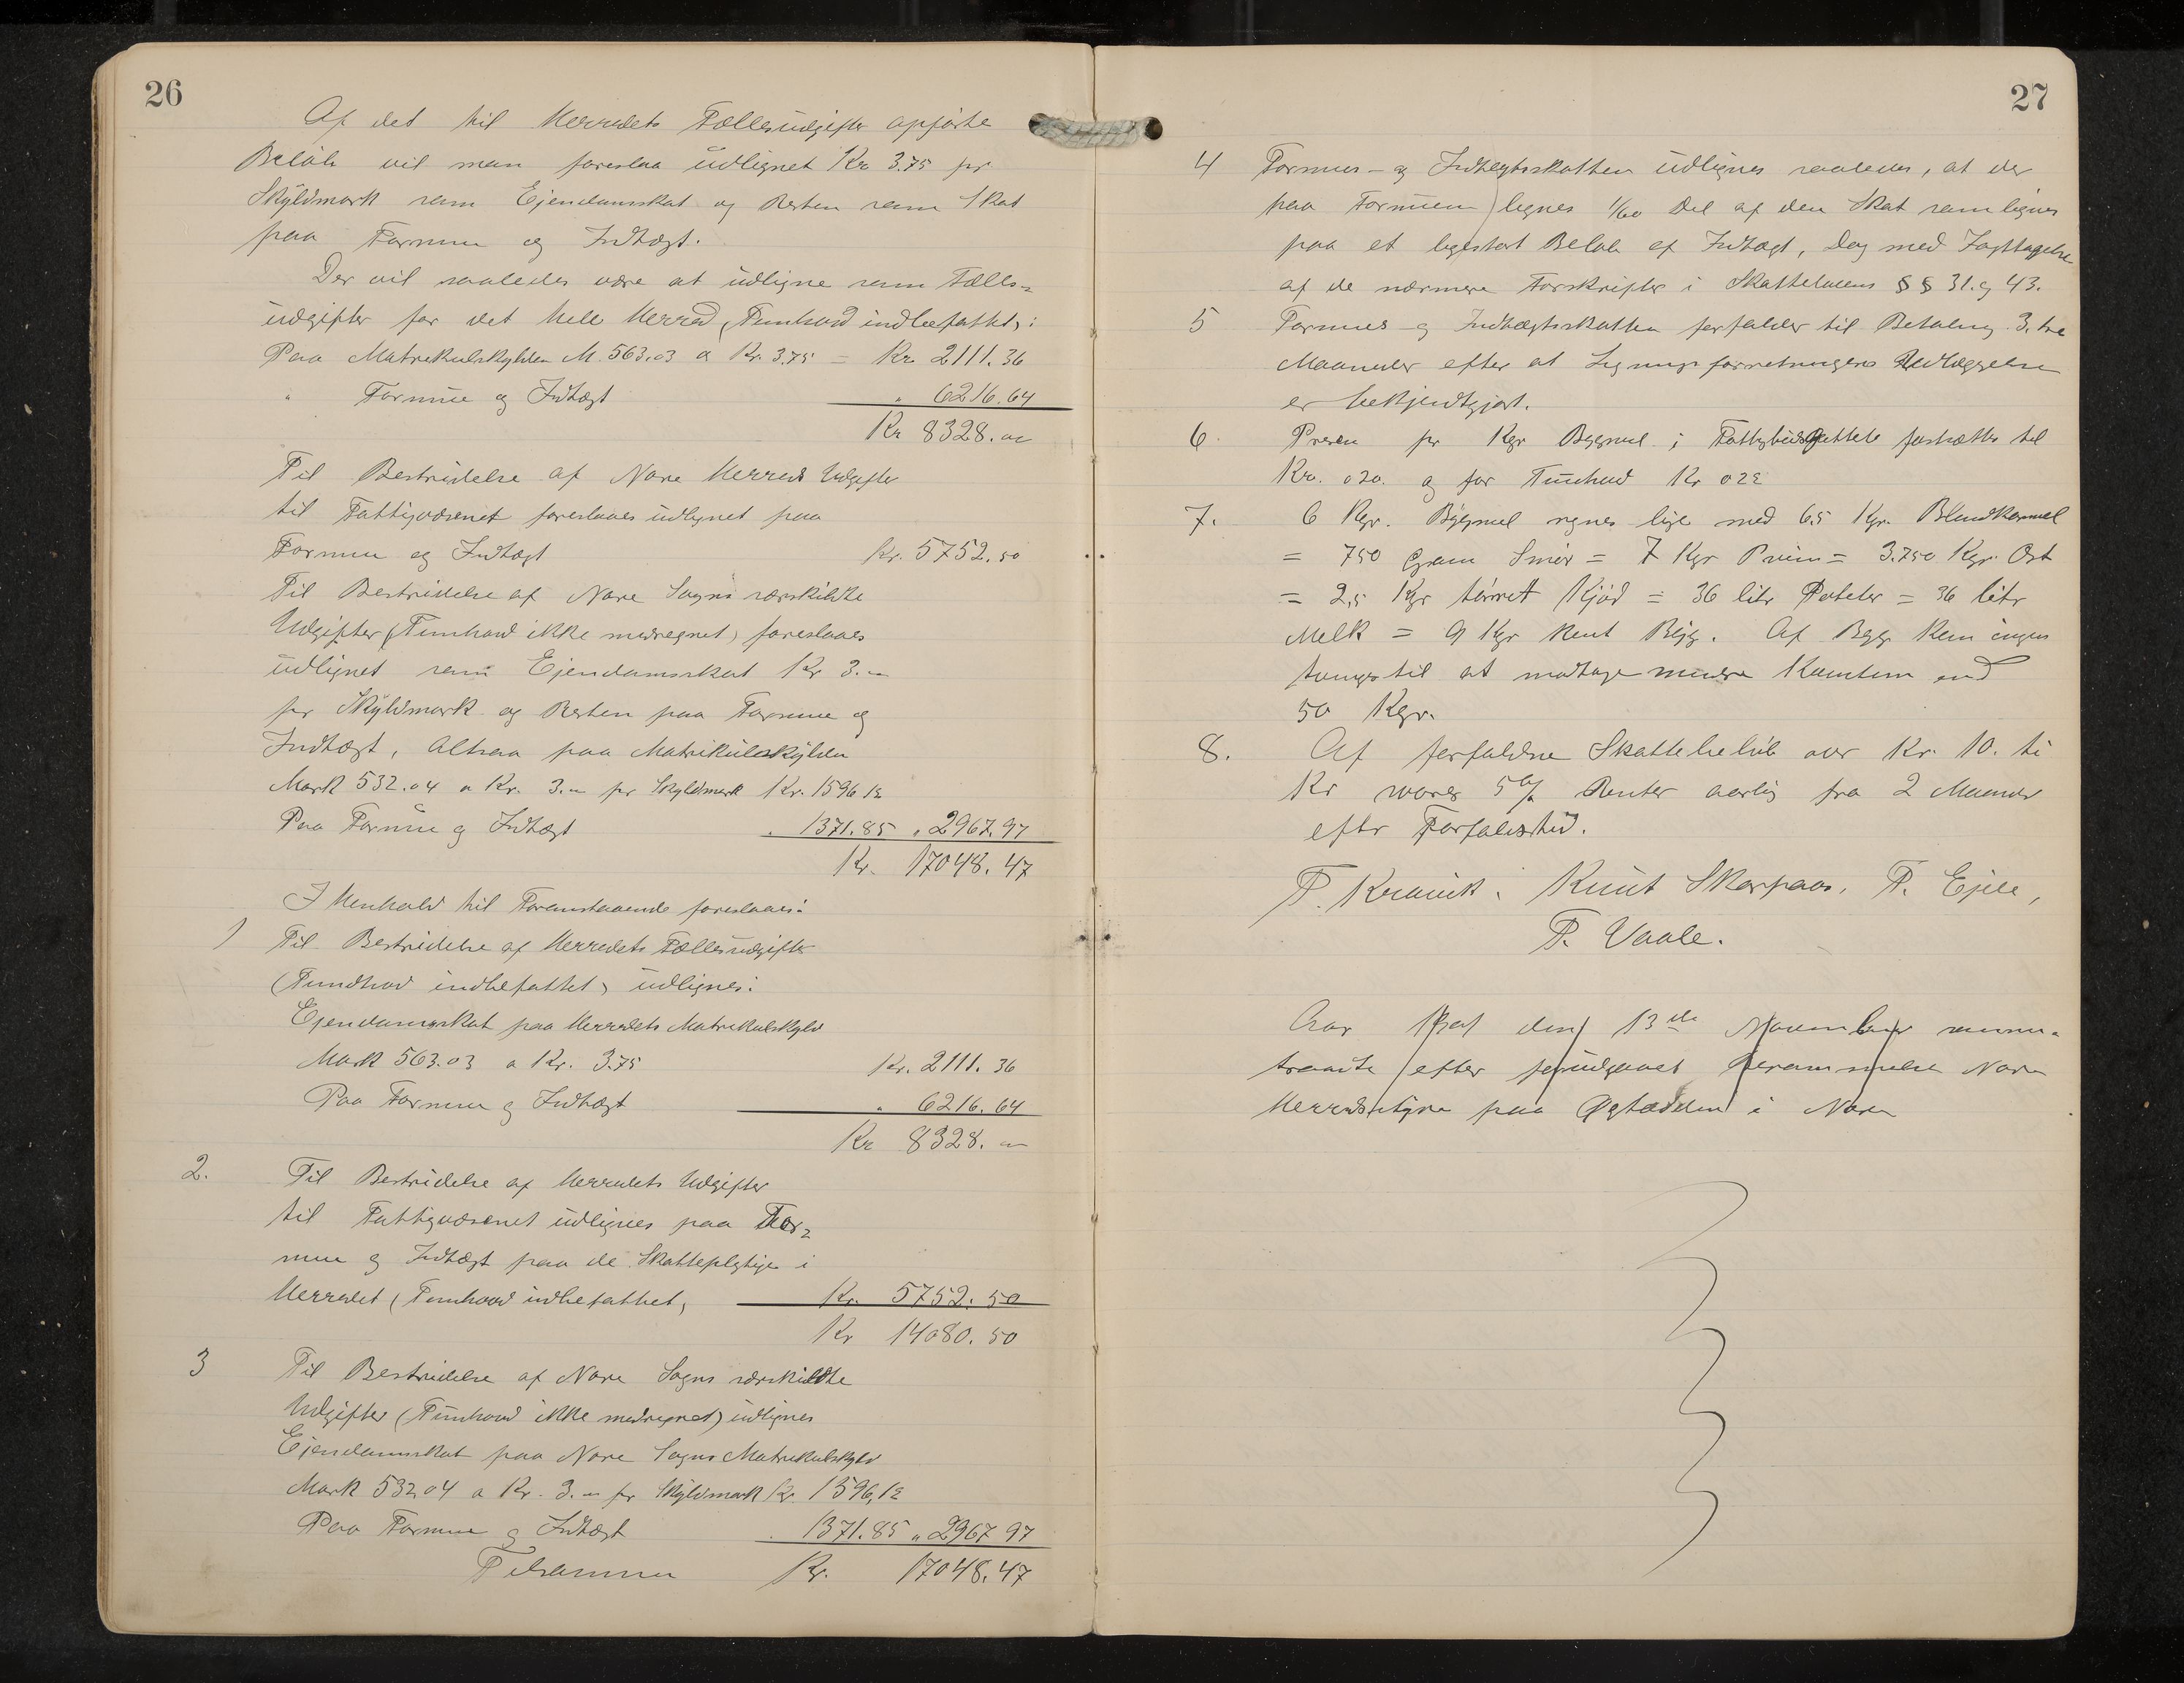 26
Af det til Herredets Fællesudgifter opførte
Beløb vil man foreslaa udlignet Kr 3.75 pr
Skyldmark som Ejendomsskat og Resten som Skat
paa Formue og Indtægt.
Der vil saaledes være at udligne som Fælles=
udgifter for det hele Herred (Tunhovd indbefattet):
Paa Matrekulskylden M. 563.03 a Kr. 3.75 = Kr. 2111.36
" Formue og Indtægt " 6216.64
Kr 8328.00
Til Bestridelse af Nore Herreds Udgifter
til Fattigvæsenet foreslaaes udlignet paa
Formue og Indtægt Kr. 5752.50
Til Bestridelse af Nore Sogns særskildte
Udgifter (Tunhovd ikke medregnet) foreslaaes
udlignet som Ejendomsskat Kr 3.00
pr Skyldmark og Resten paa Formue og
Indtægt, altsaa paa Matrikulskylden
Mark 532.04 a Kr. 3.00 pr Skyldmark Kr. 1596.12
Paa Formue og Indtægt " 1371.85 " 2967.97
Kr. 17048.47
I Henhold til Foranstaaende foreslaaes:
1 Til Bestridelse af Herredets Fællesudgifter
(Tundhovd indbefattet) udlignes:
Ejendomsskat paa Herredets Matrekulskyld
Mark 563.03 a Kr. 3.75 Kr. 2111.36
Paa Formue og Indtægt " 6216.64
Kr 8328.00
2. Til Bestridelse af Herredets Udgifter
til Fattigvæsenet udlignes paa For=
mue og Indtægt paa de Skattepligtige i
Herredet (Tunhovd indbefattet) Kr. 5752.50
Kr 14080.50
3 Til Bestridelse af Nore Sogns særskildte
Udgifter (Tunhovd ikke medregnet) udlignes
Ejendomsskat paa Nore Sogns Matrekulskyld
Mark 532.04 a Kr. 3.00 pr Skyldmark Kr. 1596,12
Paa Formue og Indtægt " 1371.85 " 2967 97
Tilsammen Kr. 17048.47
27
4 Formues- og Indtægtsskatten udlignes saaledes, at der
paa Formuen lignes 1/60 Del af den Skat som lignes
paa et ligestort Beløb af Indtægt, dog med Iagttagelse
af de nærmere Forskrifter i Skattelovens §§ 31. og 43.
5 Formues- og Indtægtsskatten forfalder til Betaling 3. tre
Maaneder efter at Ligningsforretningens Udlæggelse
er bekjendtgjort.
6. Prisen pr Kgr Bygmel i fastsættes til
Kr. 020. og for Tunhovd Kr 022
7. 6 Kgr. Bygmel regnes lige med 6,5 Kgr. Blandkornmel
= 750 Gram Smør = 7 Kgr Prim = 3.750 Kgr. Ost
= 2,5 Kgr tørret Kjød = 36 litr Poteter = 36 litr
Melk = 9 Kgr Rent Byg. Af Byg kan ingen
tvinges til at modtage mindre Kvantum end
50 Kgr.
8. Af forfaldne Skattebeløb over Kr. 10. ti
Kr svares 5 % Renter aarlig fra 2 Maaneder
efter Forfaldstid.
T. Kravik. Knut Skarpaas. T. Ejde,
T. Vaale.
Aar 1901 den 13de November sammen=
traadte efter forudgaaet Berammelse Nore
Herredsstyre paa i Nore